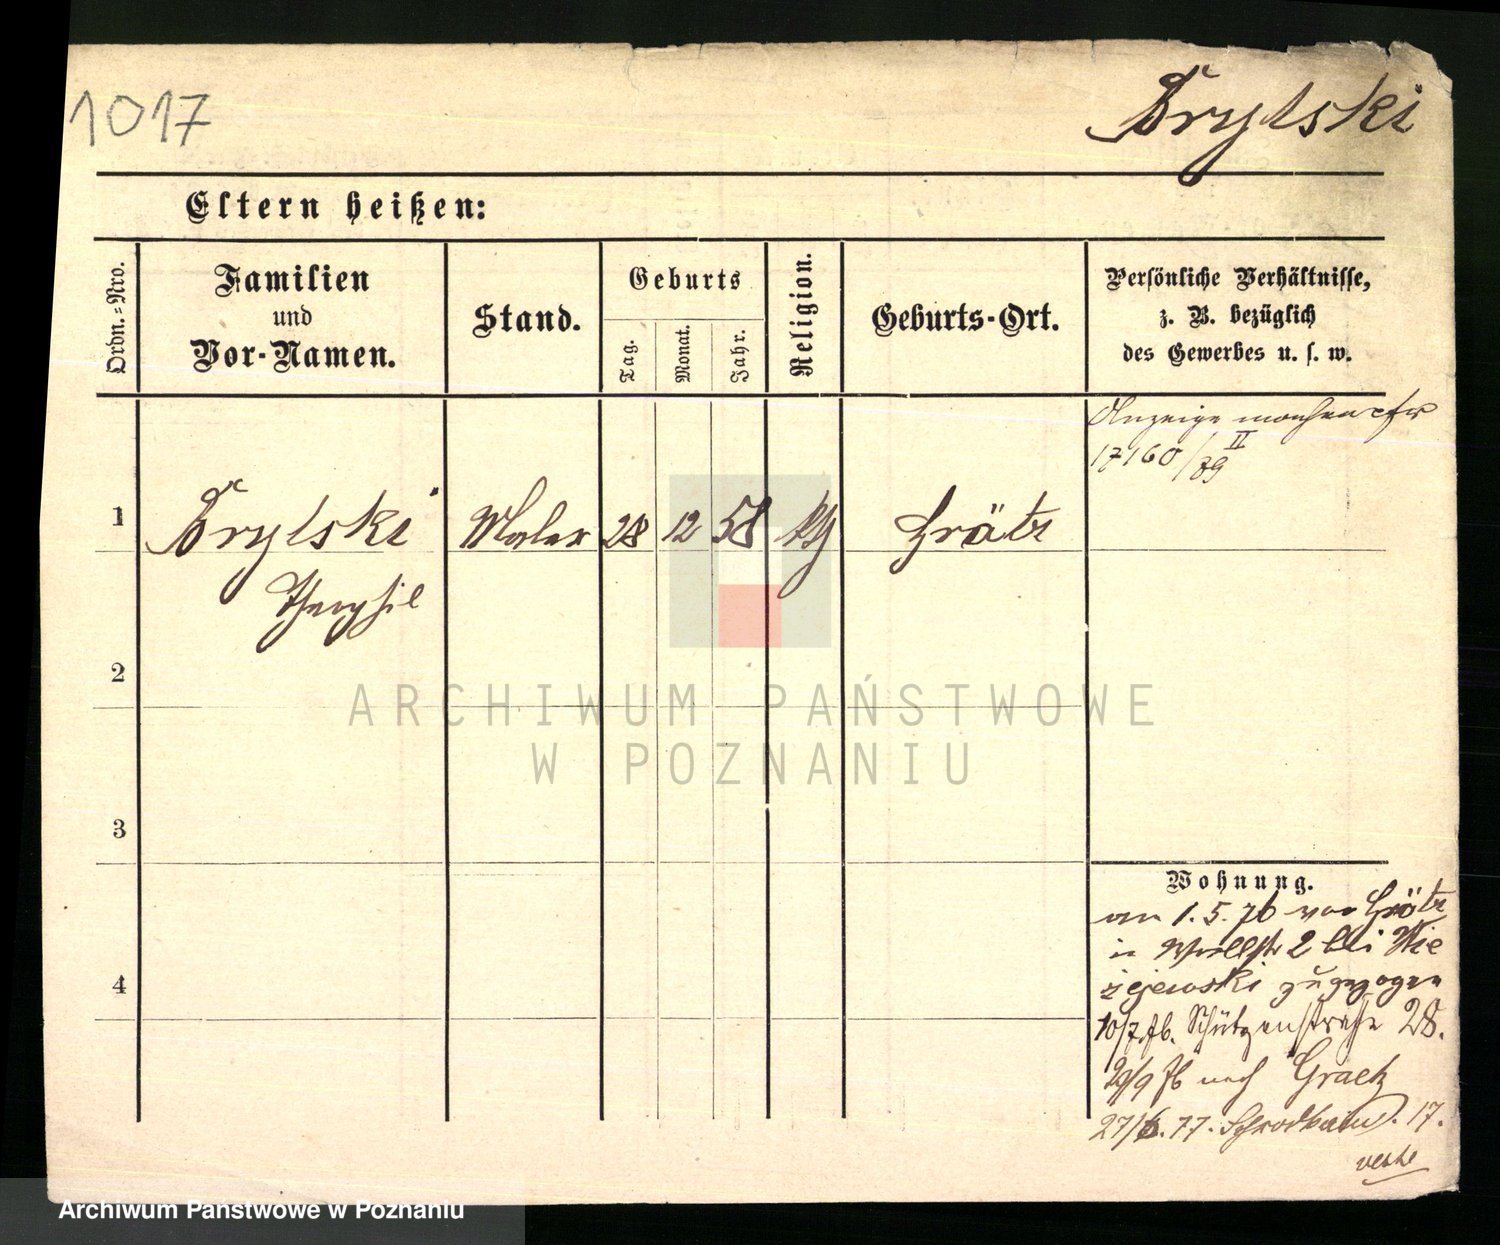 1017
Brylski
Eltern heißen:
Ordn.-Nro.
Familien
und
Vor-Namen.
Stand.
Geburts
Tag.
Monat.
Jahr.
Religion.
Geburts-Ort.
Persönliche Verhältnisse,
z. B. bezüglich
des Gewerbes u. s. w.
Anzeige machen cfr
17160/II 79
1 Brylski Maler 28 12 58 kth Grätz
Theophil
2
3
4
Wohnung.
am 1.5.76 von Grätz
in 2 bei Wie
żejewski zugezogen
10/7.76. Schützenstraße 28.
29/9 76 nach Graetz
27/6.77. 17.
verte
ARCHIWUM PAŃSTWOWE
W POZNANIU
Archiwum Państwowe w Poznaniu